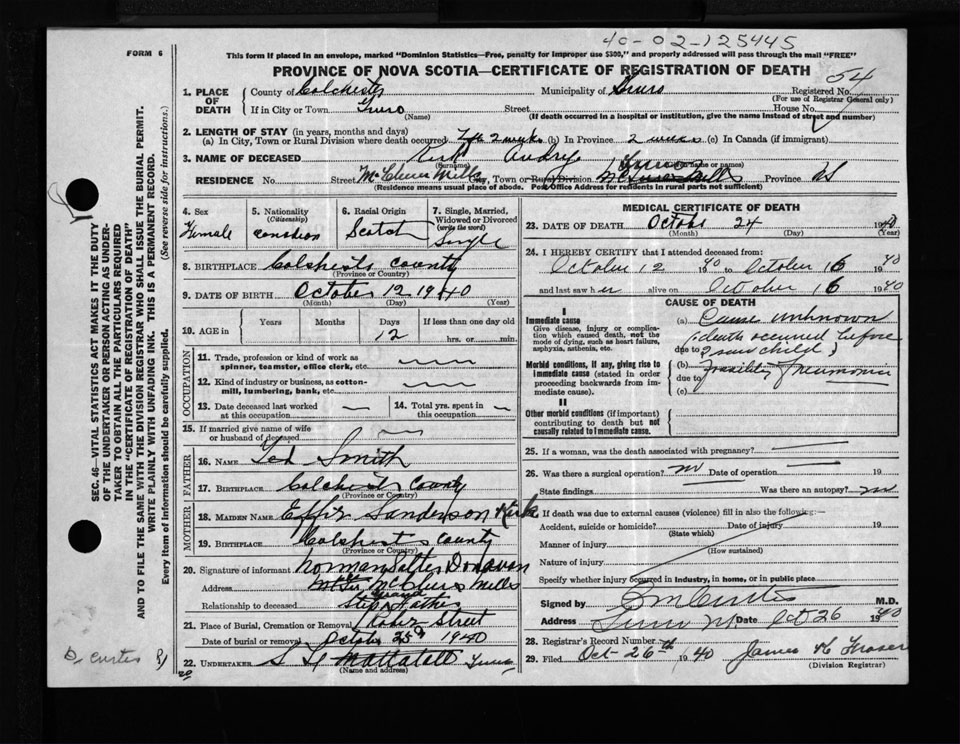 40-02-125445
FORM 6
This form if placed in an envelope, marked "Dominion Statistics—Free, penalty for improper use $300," and properly addressed will pass through the mail "FREE"
PROVINCE OF NOVA SCOTIA—CERTIFICATE OF REGISTRATION OF DEATH
54
1. PLACE OF DEATH
County of Colchester Municipality of Truro Registered No.
(For use of Registrar General only)
If in City or Town Truro Street House No.
(Name) (If death occurred in a hospital or institution, give the name instead of street and number)
2. LENGTH OF STAY (in years, months and days)
(a) In City, Town or Rural Division where death occurred 2 weeks (b) In Province 2 weeks (c) In Canada (if immigrant)
3. NAME OF DECEASED Kirk Audry
(Surname) names)
RESIDENCE No. Street McClures Mills City, Town or Rural Division Truro McClures Mills Province NS
(Residence means usual place of abode. Post Office Address for residents in rural parts not sufficient)
4. Sex Female
5. Nationality (Citizenship) Canadian
6. Racial Origin Scotch
7. Single, Married, Widowed or Divorced (write the word) Single
8. BIRTHPLACE Colchester County
(Province or Country)
9. DATE OF BIRTH October 12 1940
(Month) (Day) (Year)
10. AGE in Years Months Days 12 If less than one day old hrs. or min.
OCCUPATION
11. Trade, profession or kind of work as spinner, teamster, office clerk, etc.
12. Kind of industry or business, as cotton-mill, lumbering, bank, etc.
13. Date deceased last worked at this occupation
14. Total yrs. spent in this occupation
15. If married give name of wife or husband of deceased
FATHER
16. NAME Ted Smith
17. BIRTHPLACE Colchester County
(Province or Country)
MOTHER
18. MAIDEN NAME Effie Sanderson Kirk
19. BIRTHPLACE Colchester County
(Province or Country)
20. Signature of informant Norman Salter Donavan
Address McClures Mills
Relationship to deceased Step Grand Father
21. Place of Burial, Cremation or Removal Robie Street
Date of burial or removal October 25 1940
22. UNDERTAKER Mattatall Truro
(Name and address)
20
MEDICAL CERTIFICATE OF DEATH
23. DATE OF DEATH October 24 1940
(Month) (Day) (Year)
24. I HEREBY CERTIFY that I attended deceased from:
October 12 1940 to October 16 1940
and last saw her alive on October 16 1940
CAUSE OF DEATH
I
Immediate cause
Give disease, injury or complication which caused death, not the mode of dying, such as heart failure, asphyxia, asthenia, etc.
(a) Cause unknown
(death occurred before
due to I saw child)
Morbid conditions, if any, giving rise to immediate cause (stated in order proceeding backwards from immediate cause).
(b) Possibly Pneumonia
due to
(c)
II
Other morbid conditions (if important) contributing to death but not causally related to immediate cause.
25. If a woman, was the death associated with pregnancy?
26. Was there a surgical operation? no Date of operation 19
State findings Was there an autopsy? no
27. If death was due to external causes (violence) fill in also the following:—
Accident, suicide or homicide? Date of injury 19
(State which)
Manner of injury
(How sustained)
Nature of injury
Specify whether injury occurred in industry, in home, or in public place
Signed by Curtis M.D.
Address Truro NS Date Oct 26 1940
28. Registrar's Record Number
29. Filed Oct-26th 1940 James K Fraser
(Division Registrar)
SEC. 46—VITAL STATISTICS ACT MAKES IT THE DUTY
OF THE UNDERTAKER OR PERSON ACTING AS UNDERTAKER TO OBTAIN ALL THE PARTICULARS REQUIRED
IN THE "CERTIFICATE OF REGISTRATION OF DEATH"
AND TO FILE THE SAME WITH THE DIVISION REGISTRAR WHO SHALL ISSUE THE BURIAL PERMIT.
WRITE PLAINLY WITH UNFADING INK. THIS IS A PERMANENT RECORD.
Every item of Information should be carefully supplied. (See reverse side for instructions.)
Curtis